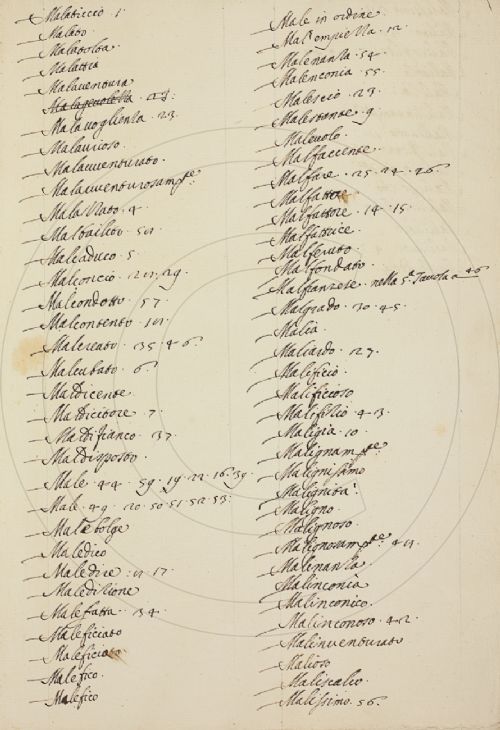 Malaticcio · 1 ·
Malato
Malatolta
Malattia
Malaventura
Malavoglienza · 23 ·
Malaurioso ·
Malavventurato ·
Malavventurosamente
Mal nato · 4 ·
Malbailito · 50 ·
Malcaduco · 5 ·
Malconcio · 29 ·
Malcondotto · 57 ·
Malcontento ·
Malcreato · 35 · 46
Malcubato · 6
Maldicente ·
Maldicitore · 7 ·
Mal di fianco · 37 ·
Mal disposto ·
Male · 44 · 59 · 19 · 22 · 16 · 39 ·
Male · 49 · 20 · 50 · 51 · 52 · 53 ·
Malebolge
Maledico
Maledire · 17 ·
Maledizione
Malefatta · 34 ·
Maleficiato
Maleficiato ·
Malefico ·
Malefico
Male in ordine ·
Mal'empiezza · 12 ·
Malenanza · 54 ·
Malenconia · 55 ·
Malescio · 23 ·
Malestante · 9 ·
Malevolo ·
Malfaccente ·
Malfare · 25 · 24 · 26 ·
Malfattore
Malfattore · 14 · 15 ·
Malfattrice ·
Malferuto ·
Malfondato ·
Malfranzese · nella 5.ª Tavola a 46
Malgrado · 30 · 45 ·
Malia ·
Maliardo · 27 ·
Malificio ·
Malificioso
Malifizio · 43 ·
Maligia · 10 ·
Malignamente
Malignissimo
Malignità ·
Maligno ·
Malignoso ·
Malignosamente
Malinanza
Malinconia
Malinconico ·
Malinconoso · 42 ·
Malinventurato
Malioso
Maliscalco ·
Malissimo · 56 ·